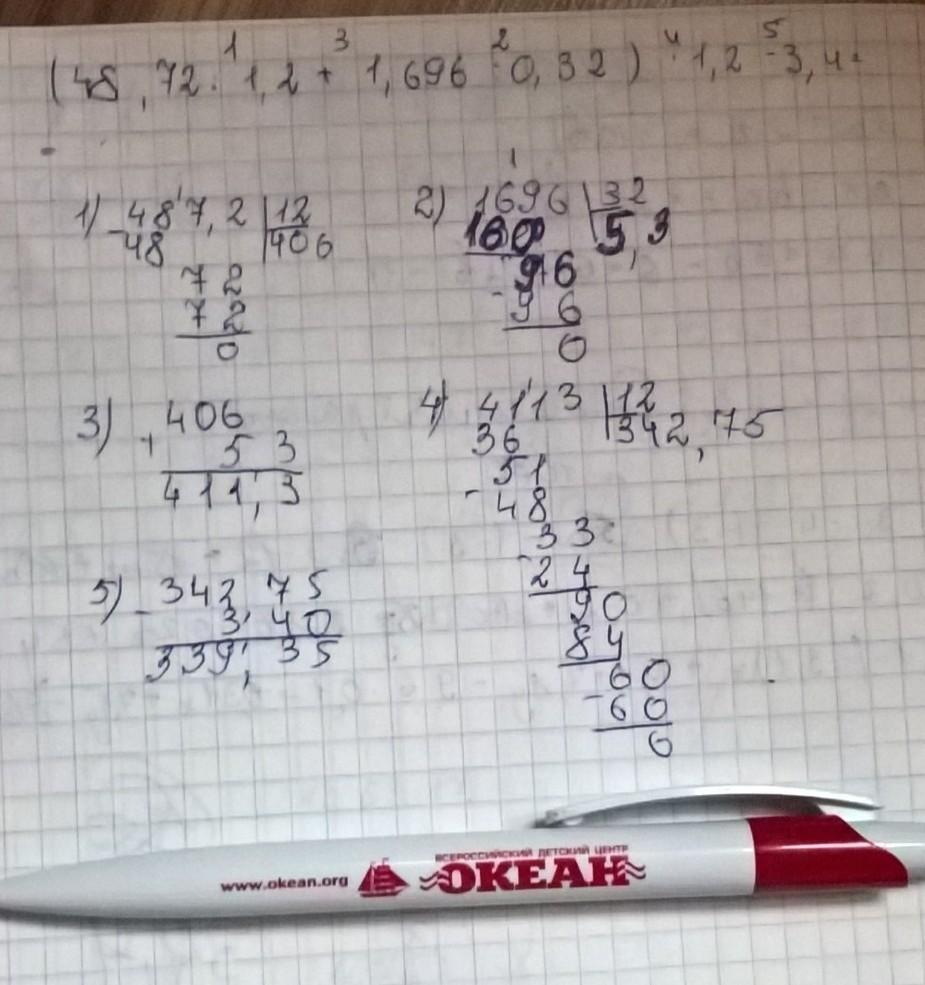 1 3 2 4 5
(48,72 : 1,2 + 1,696 : 0,32) : 1,2 - 3,4 =
1) 487,2 | 12
48 | 406
72
72
0
2) 1696 | 32
160 | 5,3
96
- 96
0
3) 406
+ 5 3
411,3
4) 4113 | 12
36 | 342,75
51
- 48
33
- 24
90
84
60
- 60
0
5) - 342,75
3,40
339,35
ВСЕРОССИЙСКИЙ ДЕТСКИЙ ЦЕНТР
www.okean.org ОКЕАН